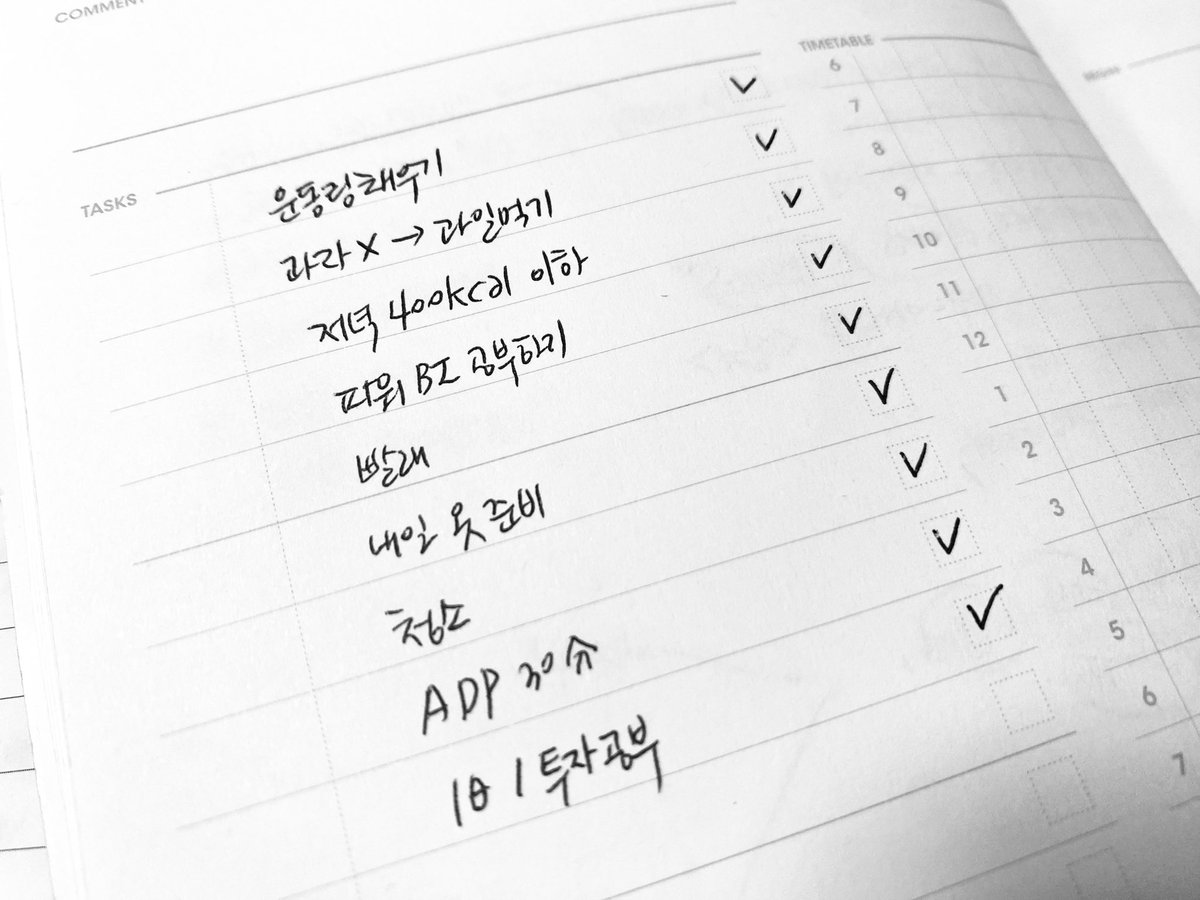 COMMENT
TASKS
운동링채우기
과자 X → 과일먹기
저녁 400kcal 이하
파워 BI 공부하기
빨래
내일 옷 준비
청소
ADP 30쉬
1일 1 투자공부
TIMETABLE
6
7
8
9
10
11
12
1
2
3
4
5
6
7